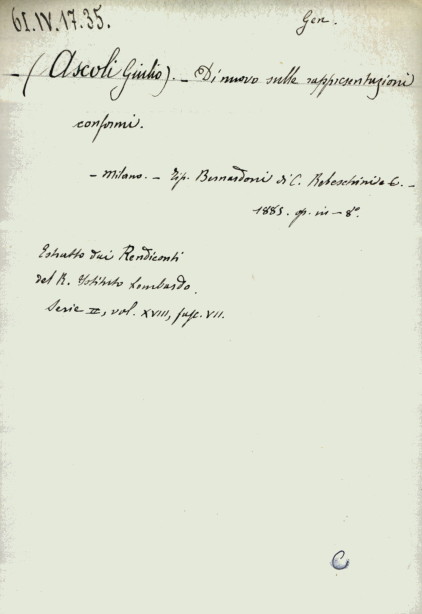 61.IV.17.35.
Gen.
— (Ascoli Giulio). — Di nuovo sulle rappresentazioni
conformi.
— Milano. — Tip. Bernardoni di C. Rebeschini e C. —
1885. op. in - 8°.
Estratto dai Rendiconti
del R. Istituto Lombardo.
Serie II, vol. XVIII, fasc. VII.
C